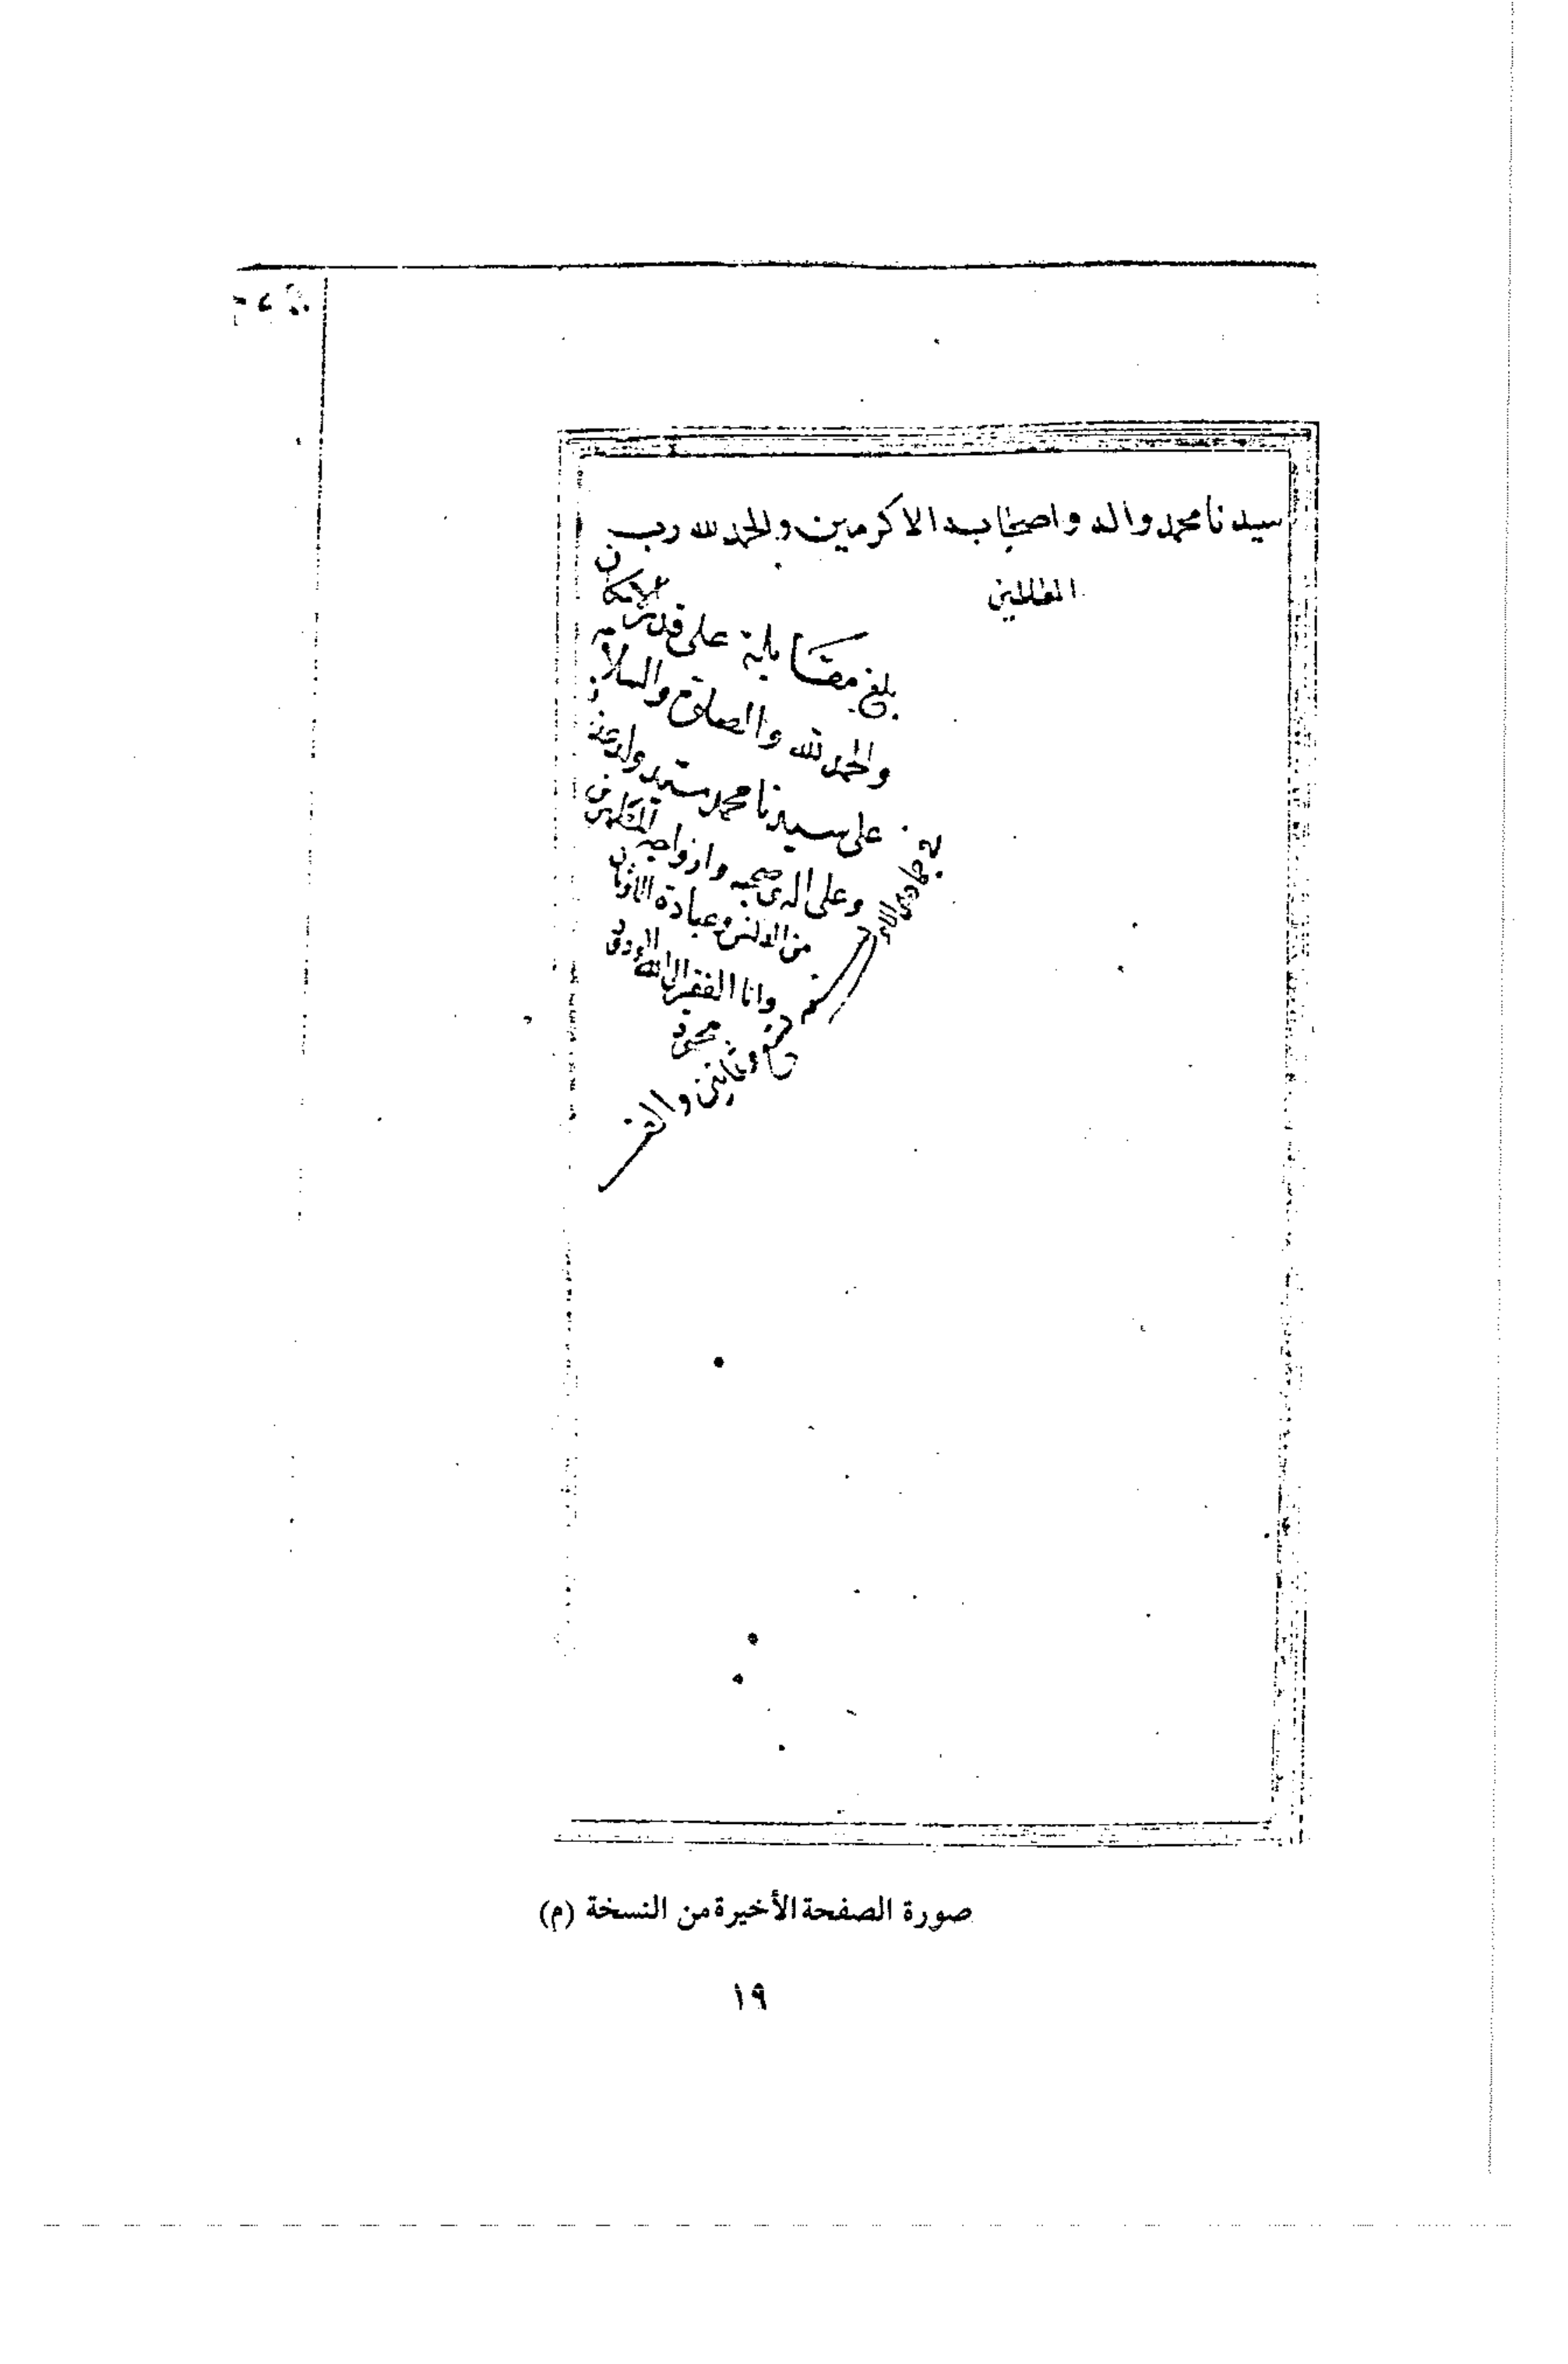 سيدنا محمد واله واصحابه الاكرمين والحمد لله رب
العالمين
بلغ مقابلة على قدر الامكان
والحمد لله والصلوة والسلام
على سيدنا محمد سيد ولد عدنان
وعلى اله وصحبه وازواجه
من الدنس وعبادة الاوثان
وانا الفقير الى الله الودود
محمود
في جمادى
صورة الصفحة الأخيرة من النسخة (م)
١٩